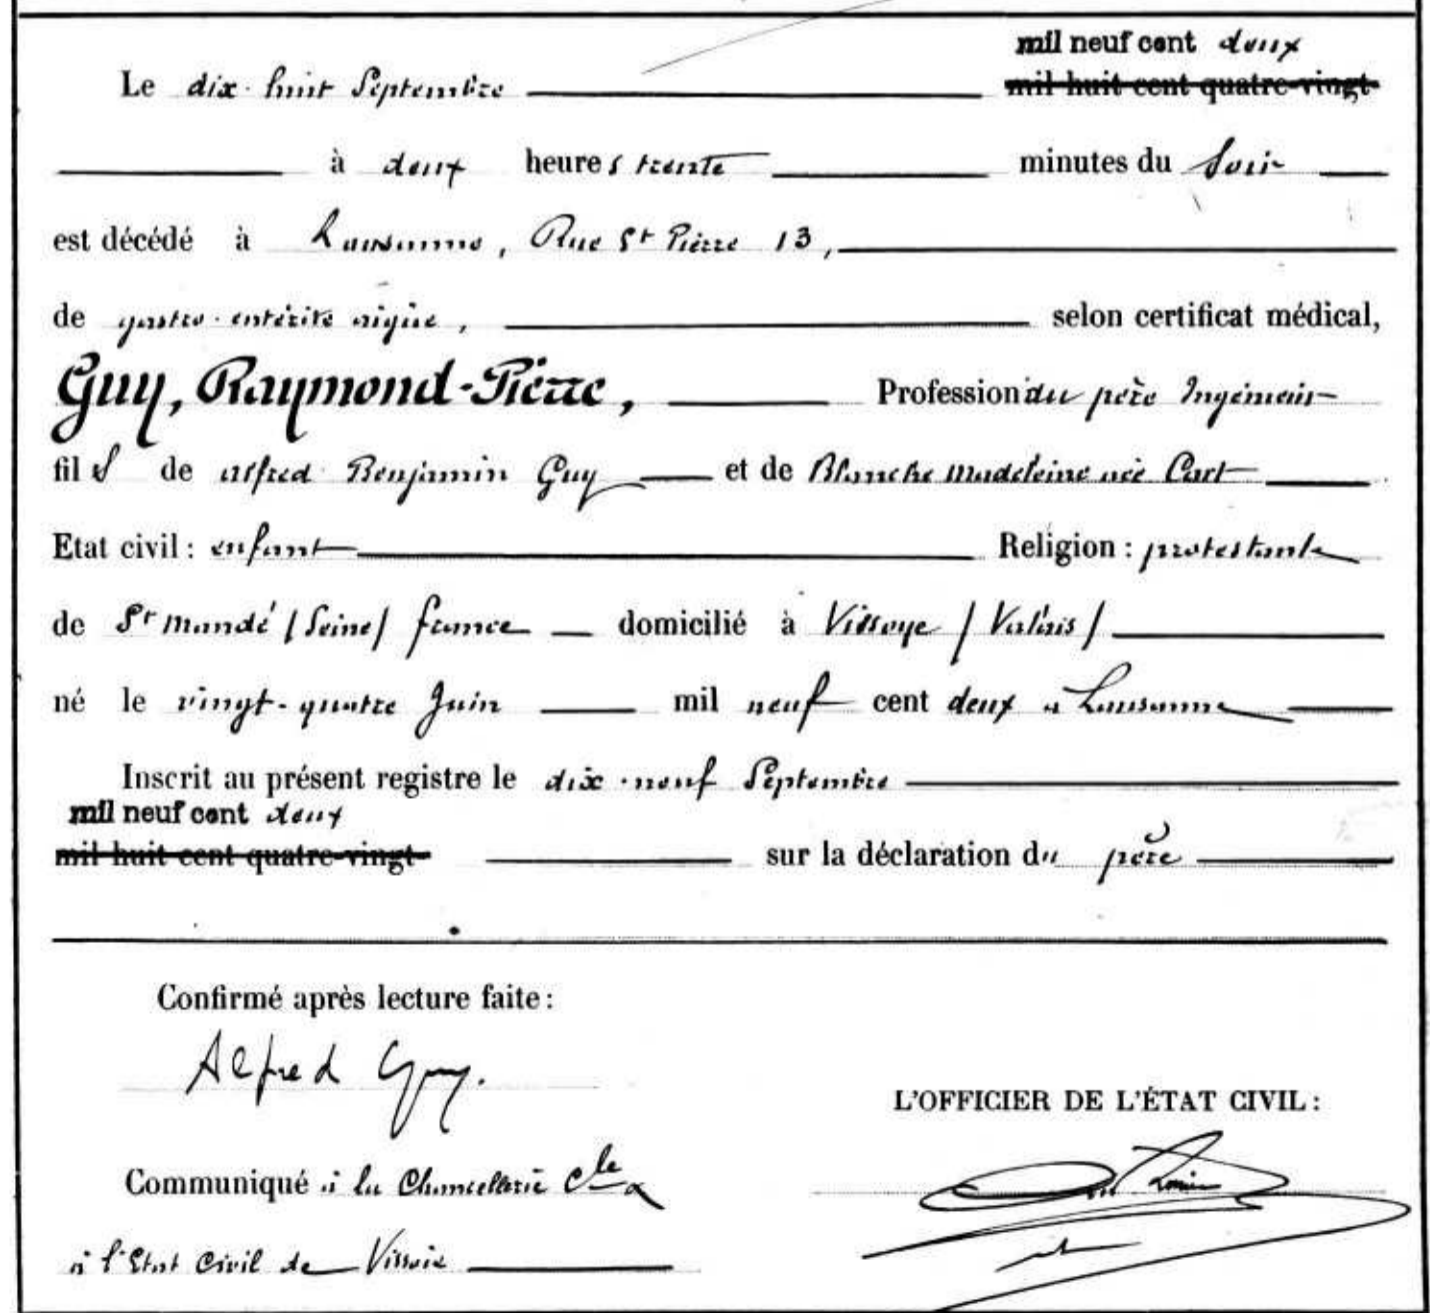 mil neuf cent deux
Le dix-huit Septembre mil huit cent quatre-vingt
à deux heures trente minutes du soir
est décédé à Lausanne, Rue St Pierre 13,
de gastro-entérite aigüe, selon certificat médical,
Guy, Raymond-Pierre, Profession du père Ingénieur
fils de Alfred Benjamin Guy et de Blanche Madeleine née Cart
Etat civil : enfant Religion : protestante
de St Mandé / Seine / France domicilié à Vissoye / Valais /
né le vingt-quatre Juin mil neuf cent deux à Lausanne
Inscrit au présent registre le dix-neuf Septembre
mil neuf cent deux
mil huit cent quatre-vingt sur la déclaration du père
Confirmé après lecture faite :
Alfred Guy.
L'OFFICIER DE L'ÉTAT CIVIL :
Communiqué à la Chancellerie Cle
à l'Etat Civil de Vissoie